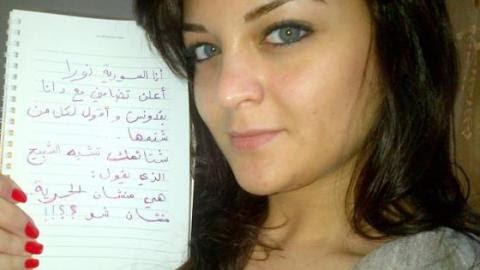 أنا السورية نورا
أعلن تضامني مع دانا
بقدونس و أقول لكل من
شتمها.
شتائمك تشبه الشبيح
الذي يقول:
هي منشان الحرية
منشان شو ؟؟؟!!